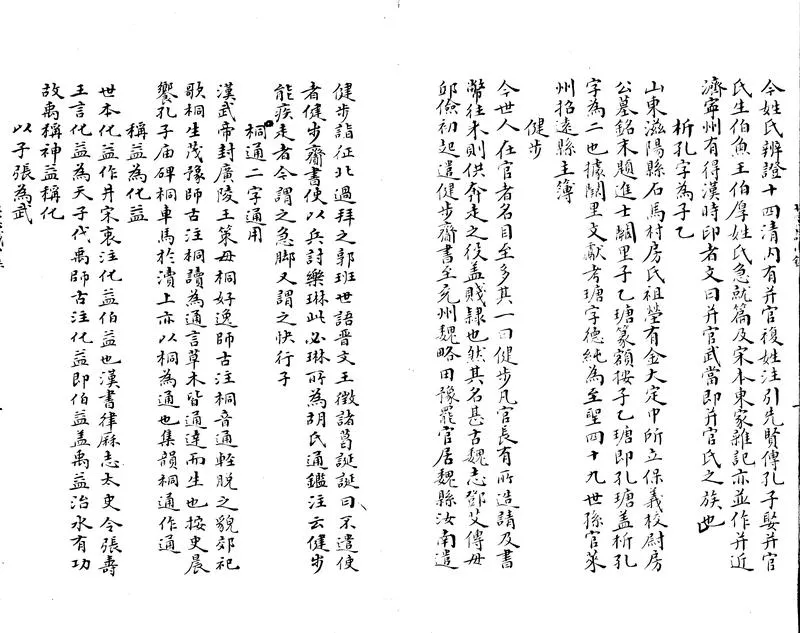 今姓氏辨證十四清内有并官復姓注引先賢傳孔子娶并官
氏生伯魚王伯厚姓氏急就篇及宋本東家雜記亦並作并近
濟寧州有得漢時印者文曰并官武當即并官氏之族也
析孔字為子乙
山東滋陽縣石馬村房氏祖塋有金大定中所立保義校尉房
公墓銘末題進士闕里子乙瑭篆額按子乙瑭即孔瑭蓋析孔
字為二也據闕里文獻考瑭字德純為至聖四十九世孫官萊
州招遠縣主簿
健步
今世人在官者名目至多其一曰健步凡官長有所造請及書
幣往来則供奔走之役盖賤隸也然其名甚古魏志鄧艾傳毋
邱儉初起遣健步齎書至兖州魏略田豫罷官居魏縣汝南遣
健步詣征北過拜之郭班世語晋文王徵諸葛誕誕曰不遣使
者健步齎書使以兵討樂琳此必琳所為胡氏通鑑注云健步
能疾走者今謂之急脚又謂之快行子
桐通二字通用
漢武帝封廣陵王策毋桐好逸師古注桐音通輕脱之貌郊祀
歌桐生茂豫師古注桐讀為通言草木皆通達而生也按史晨
饗孔子庙碑桐車馬於瀆上亦以桐為通也集韻桐通作通
稱益為化益
世本化益作井宋衷注化益伯益也漢書律厤志太史令張壽
王言化益為天子代禹師古注化益即伯益盖禹益治水有功
故禹稱神益稱化
以子張為武